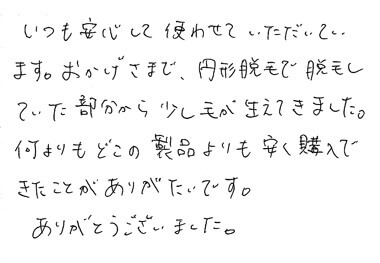 いつも安心して使わせていただいてい
ます。おかげさまで、円形脱毛で脱毛し
ていた部分から少し毛が生えてきました。
何よりもどこの製品よりも安く購入で
きたことがありがたいです。
ありがとうございました。